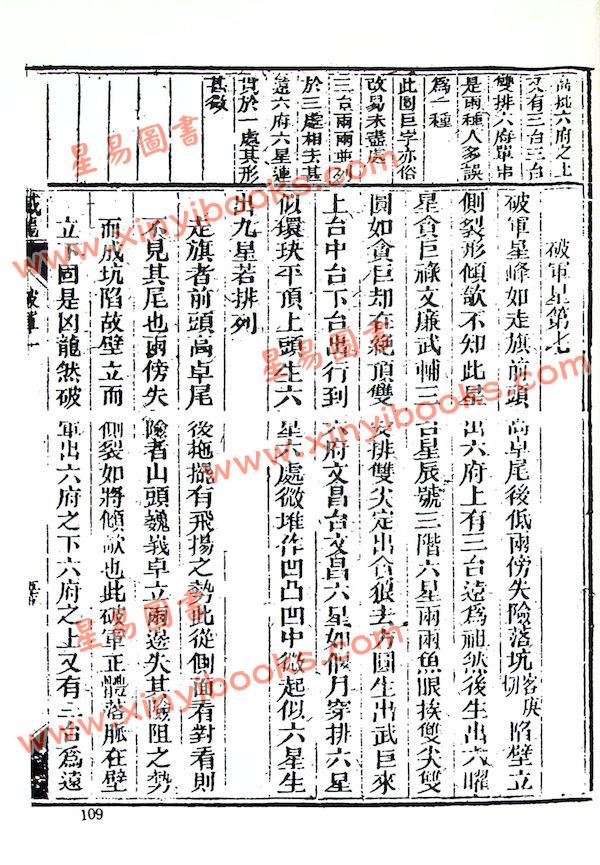 高地六府之上
又有三台三台
雙排六府單串
是兩種人多誤
為一種
此圖巨字亦俗
改易未盡處
三台兩兩並列
於三處相去甚
遠六府六星連
貫於一處其形
甚微
破軍星第七
破軍星峰如走旗前頭高卓尾後低兩傍失險落坑客庚切陷壁立
側裂形傾欹不知此星出六府上有三台遠為祖然後生出六曜
星貪巨祿文廉武輔三台星辰號三階六星兩兩魚眼挨雙尖雙
圓如貪巨却在絕頂雙安排雙尖定出貪狼去方圓生出武巨來
上台中台下台出行到六府文昌台文昌六星如偃月穿排六星
似環玦平頂上頭生六星六處微堆作凹凸凹中微起似六星生
出九星若排列
走旗者前頭高卓尾後拖擺有飛揚之勢此從側面看對看則
不見其尾也兩傍失險者山頭巍峩卓立兩邊失其險阻之勢
而成坑陷故壁立而側裂如將傾欹也此破軍正體落脈在壁
立下固是凶龍然破軍出六府之下六府之上又有三台為遠
破軍一
星易圖書
www.xinyibooks.com
星易圖書
www.xinyibooks.com
星易圖書
www.xinyibooks.com
109